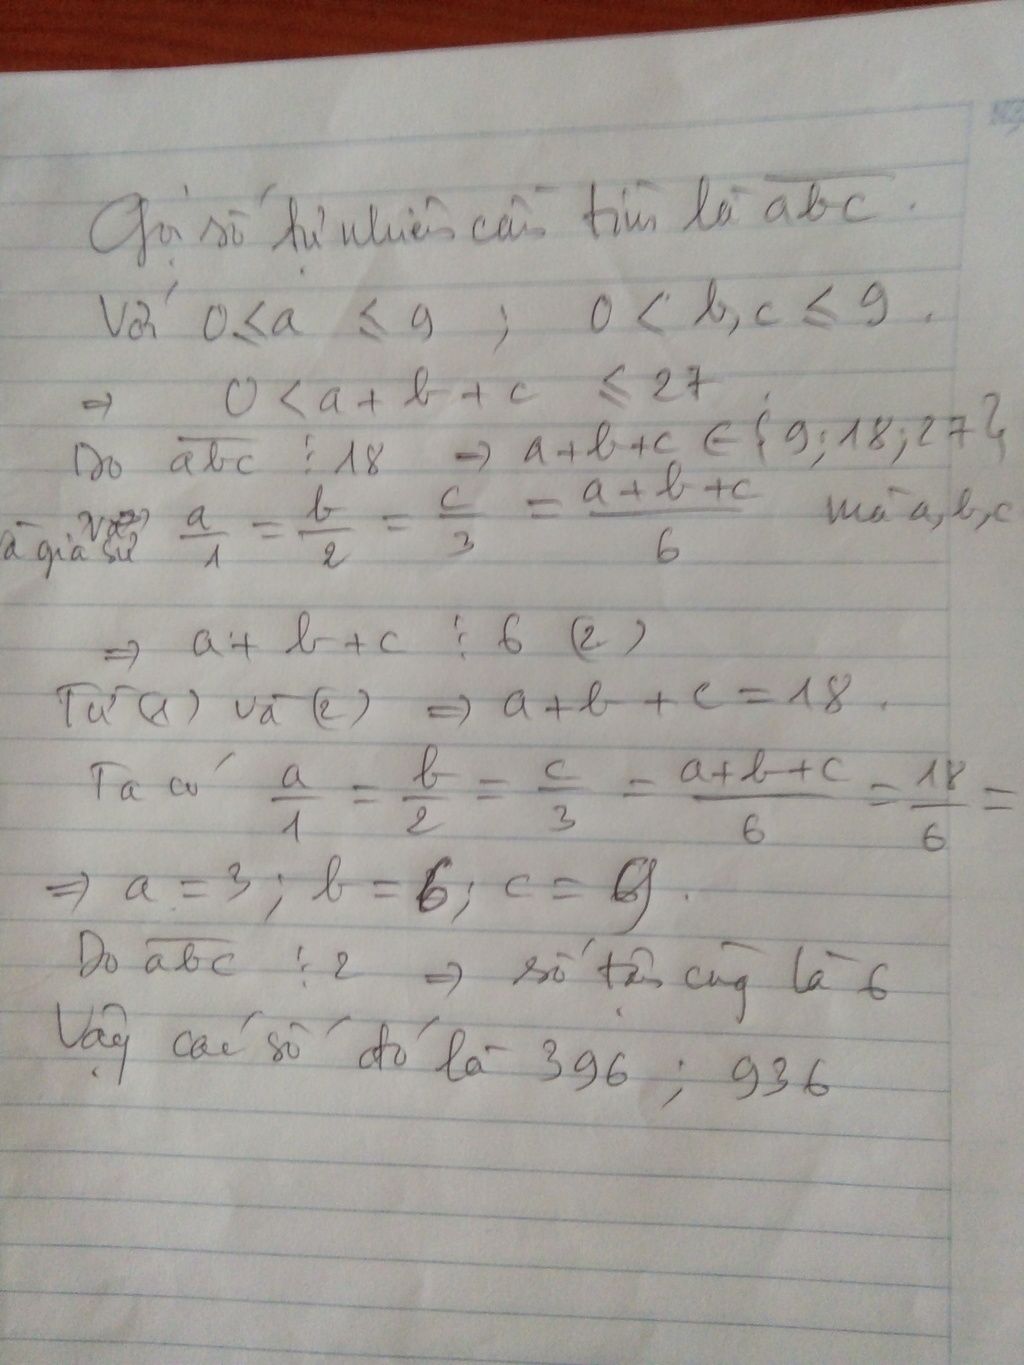 Gọi số tự nhiên cần tìm là abc.
Với 0 ≤ a ≤ 9 ; 0 < b,c ≤ 9.
⇒ 0 < a + b + c ≤ 27
Do abc ⋮ 18 ⇒ a+b+c ∈ {9;18;27}
và giả sử a/1 = b/2 = c/3 = a+b+c/6 mà a,b,c
⇒ a + b + c ⋮ 6 (2)
Từ (1) và (2) ⇒ a+b + c = 18.
Ta có a/1 = b/2 = c/3 = a+b+c/6 = 18/6 =
⇒ a = 3 ; b = 6 ; c = 9.
Do abc ⋮ 2 ⇒ số tận cùng là 6
Vậy các số đó là 396 ; 936